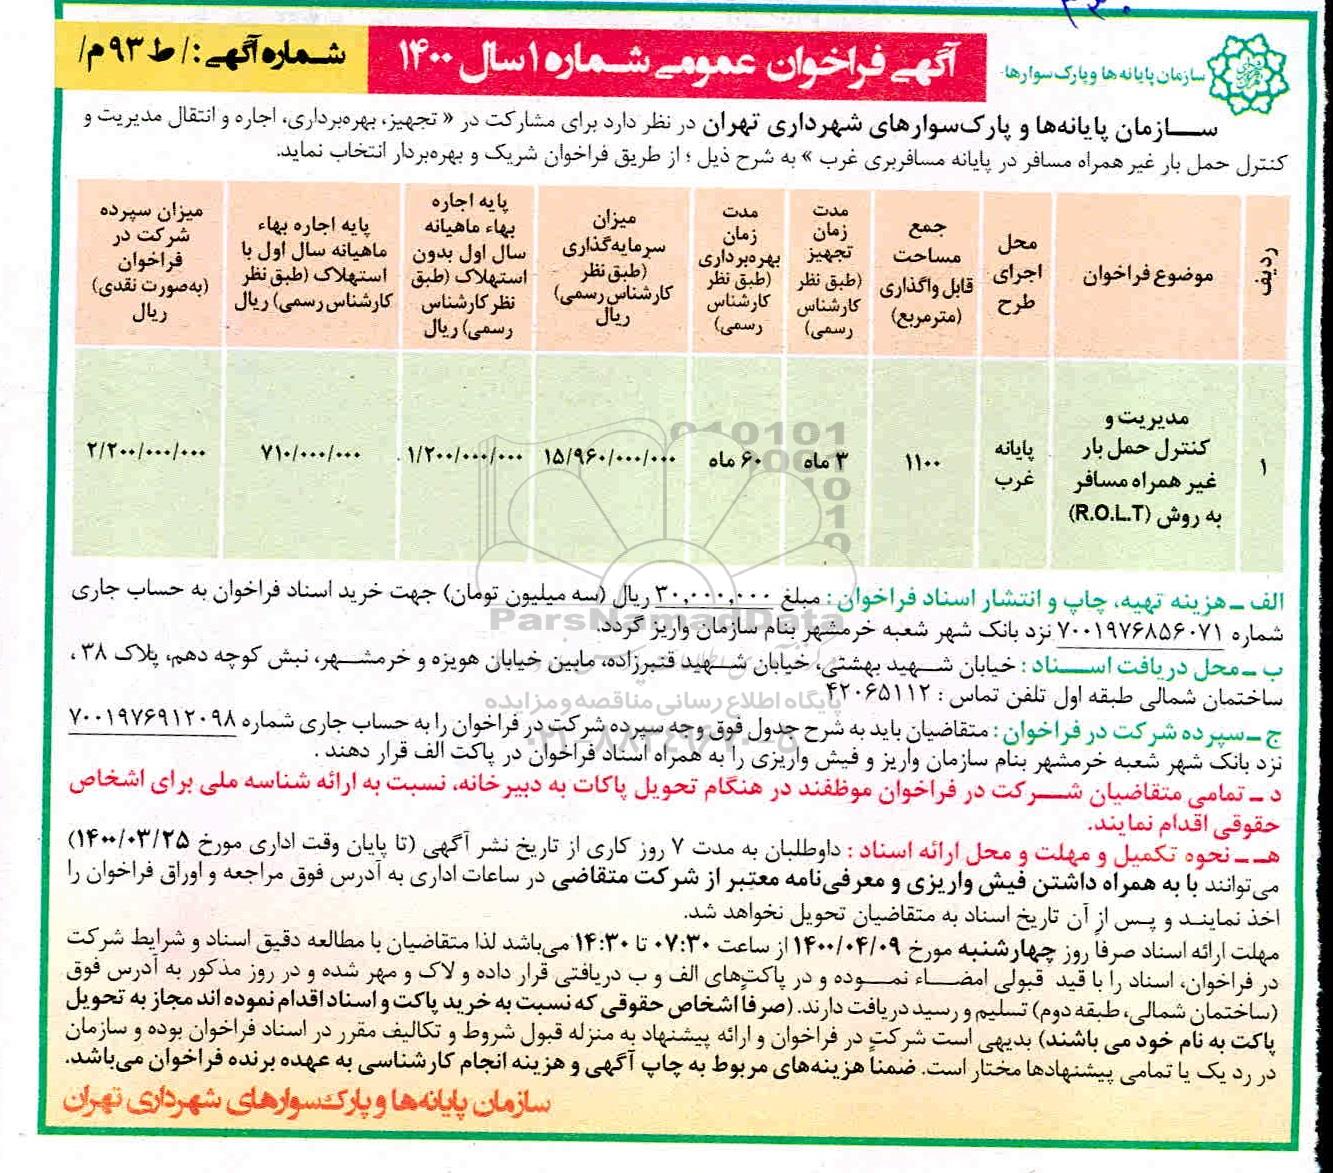 سازمان پایانه‌ها و پارک‌سوارها
آگهی فراخوان عمومی شماره ۱ سال ۱۴۰۰
شماره آگهی: / ط ۹۳ م/
ســازمان پایانه‌ها و پارک‌سوارهای شهرداری تهران در نظر دارد برای مشارکت در « تجهیز، بهره‌برداری، اجاره و انتقال مدیریت و
کنترل حمل بار غیر همراه مسافر در پایانه مسافربری غرب » به شرح ذیل ؛ از طریق فراخوان شریک و بهره‌بردار انتخاب نماید.
ردیف
موضوع فراخوان
محل
اجرای
طرح
جمع
مساحت
قابل واگذاری
(مترمربع)
مدت
زمان
تجهیز
(طبق نظر
کارشناس
رسمی)
مدت
زمان
بهره‌برداری
(طبق نظر
کارشناس
رسمی)
میزان
سرمایه‌گذاری
(طبق نظر
کارشناس رسمی)
ریال
پایه اجاره
بهاء ماهیانه
سال اول بدون
استهلاک (طبق
نظر کارشناس
رسمی) ریال
پایه اجاره بهاء
ماهیانه سال اول با
استهلاک (طبق نظر
کارشناس رسمی) ریال
میزان سپرده
شرکت در
فراخوان
(به‌صورت نقدی)
ریال
۱
مدیریت و
کنترل حمل بار
غیر همراه مسافر
به روش (R.O.L.T)
پایانه
غرب
۱۱۰۰
۳ ماه
۶۰ ماه
۱۵/۹۶۰/۰۰۰/۰۰۰
۱/۲۰۰/۰۰۰/۰۰۰
۷۱۰/۰۰۰/۰۰۰
۲/۲۰۰/۰۰۰/۰۰۰
الف ـ هزینه تهیه، چاپ و انتشار اسناد فراخوان : مبلغ ۳۰,۰۰۰,۰۰۰ ریال (سه میلیون تومان) جهت خرید اسناد فراخوان به حساب جاری
شماره ۷۰۰۱۹۷۶۸۵۶۰۷۱ نزد بانک شهر شعبه خرمشهر بنام سازمان واریز گردد.
ب ـ محل دریافت اســناد : خیابان شــهید بهشتی، خیابان شــهید قنبرزاده، مابین خیابان هویزه و خرمشــهر، نبش کوچه دهم، پلاک ۳۸ ،
ساختمان شمالی طبقه اول تلفن تماس : ۴۲۰۶۵۱۱۲
ج ـ سپرده شرکت در فراخوان : متقاضیان باید به شرح جدول فوق وجه سپرده شرکت در فراخوان را به حساب جاری شماره ۷۰۰۱۹۷۶۹۱۲۰۹۸
نزد بانک شهر شعبه خرمشهر بنام سازمان واریز و فیش واریزی را به همراه اسناد فراخوان در پاکت الف قرار دهند .
د ـ تمامی متقاضیان شــرکت در فراخوان موظفند در هنگام تحویل پاکات به دبیرخانه، نسبت به ارائه شناسه ملی برای اشخاص
حقوقی اقدام نمایند.
هــ ـ نحوه تکمیل و مهلت و محل ارائه اسناد : داوطلبان به مدت ۷ روز کاری از تاریخ نشر آگهی (تا پایان وقت اداری مورخ ۱۴۰۰/۰۳/۲۵)
می‌توانند با به همراه داشتن فیش واریزی و معرفی‌نامه معتبر از شرکت متقاضی در ساعات اداری به آدرس فوق مراجعه و اوراق فراخوان را
اخذ نمایند و پس از آن تاریخ اسناد به متقاضیان تحویل نخواهد شد.
مهلت ارائه اسناد صرفاً روز چهارشنبه مورخ ۱۴۰۰/۰۴/۰۹ از ساعت ۰۷:۳۰ تا ۱۴:۳۰ می‌باشد لذا متقاضیان با مطالعه دقیق اسناد و شرایط شرکت
در فراخوان، اسناد را با قید قبولی امضــاء نمــوده و در پاکت‌های الف و ب دریافتی قرار داده و لاک و مهر شده و در روز مذکور به آدرس فوق
(ساختمان شمالی، طبقه دوم) تسلیم و رسید دریافت دارند. (صرفاً اشخاص حقوقی که نسبت به خرید پاکت و اسناد اقدام نموده اند مجاز به تحویل
پاکت به نام خود می باشند) بدیهی است شرکت در فراخوان و ارائه پیشنهاد به منزله قبول شروط و تکالیف مقرر در اسناد فراخوان بوده و سازمان
در رد یک یا تمامی پیشنهادها مختار است. ضمناً هزینه‌های مربوط به چاپ آگهی و هزینه انجام کارشناسی به عهده برنده فراخوان می‌باشد.
سازمان پایانه‌ها و پارک‌سوارهای شهرداری تهران
ParsNamadData
پایگاه اطلاع رسانی مناقصه و مزایده